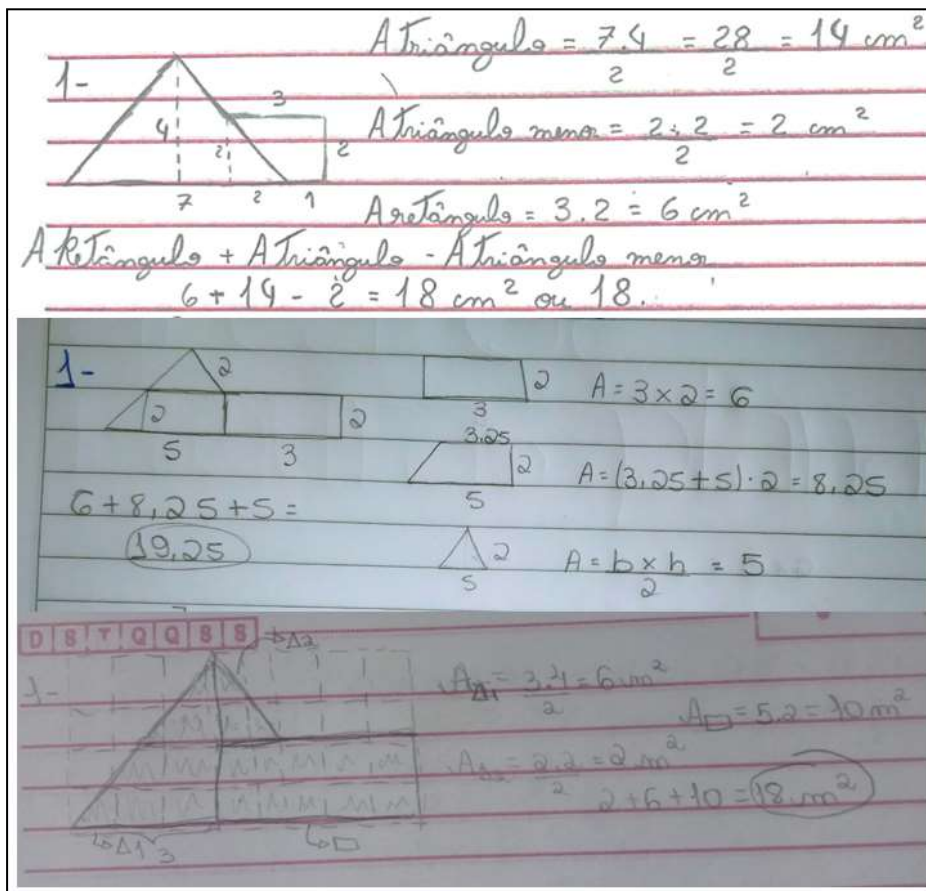 A Triângulo = 7.4/2 = 28/2 = 14 cm²
1-
3
4
2
2
7
2
1
A Triângulo menor = 2.2/2 = 2 cm²
A retângulo = 3.2 = 6 cm²
A Retângulo + A Triângulo - A Triângulo menor
6 + 14 - 2 = 18 cm² ou 18.
1-
2
2
2
5
3
2
3
A = 3 x 2 = 6
3.25
2
5
A = (3,25 + 5) · 2 = 8,25
6 + 8,25 + 5 =
19,25
2
5
A = b x h/2 = 5
D S T Q Q S S
Δ2
1-
AΔ1 = 3.4/2 = 6 cm²
A▭ = 5.2 = 10 m²
= 2.2/2 = 2 m²
2 + 6 + 10 = 18 cm²
Δ1
3
▭